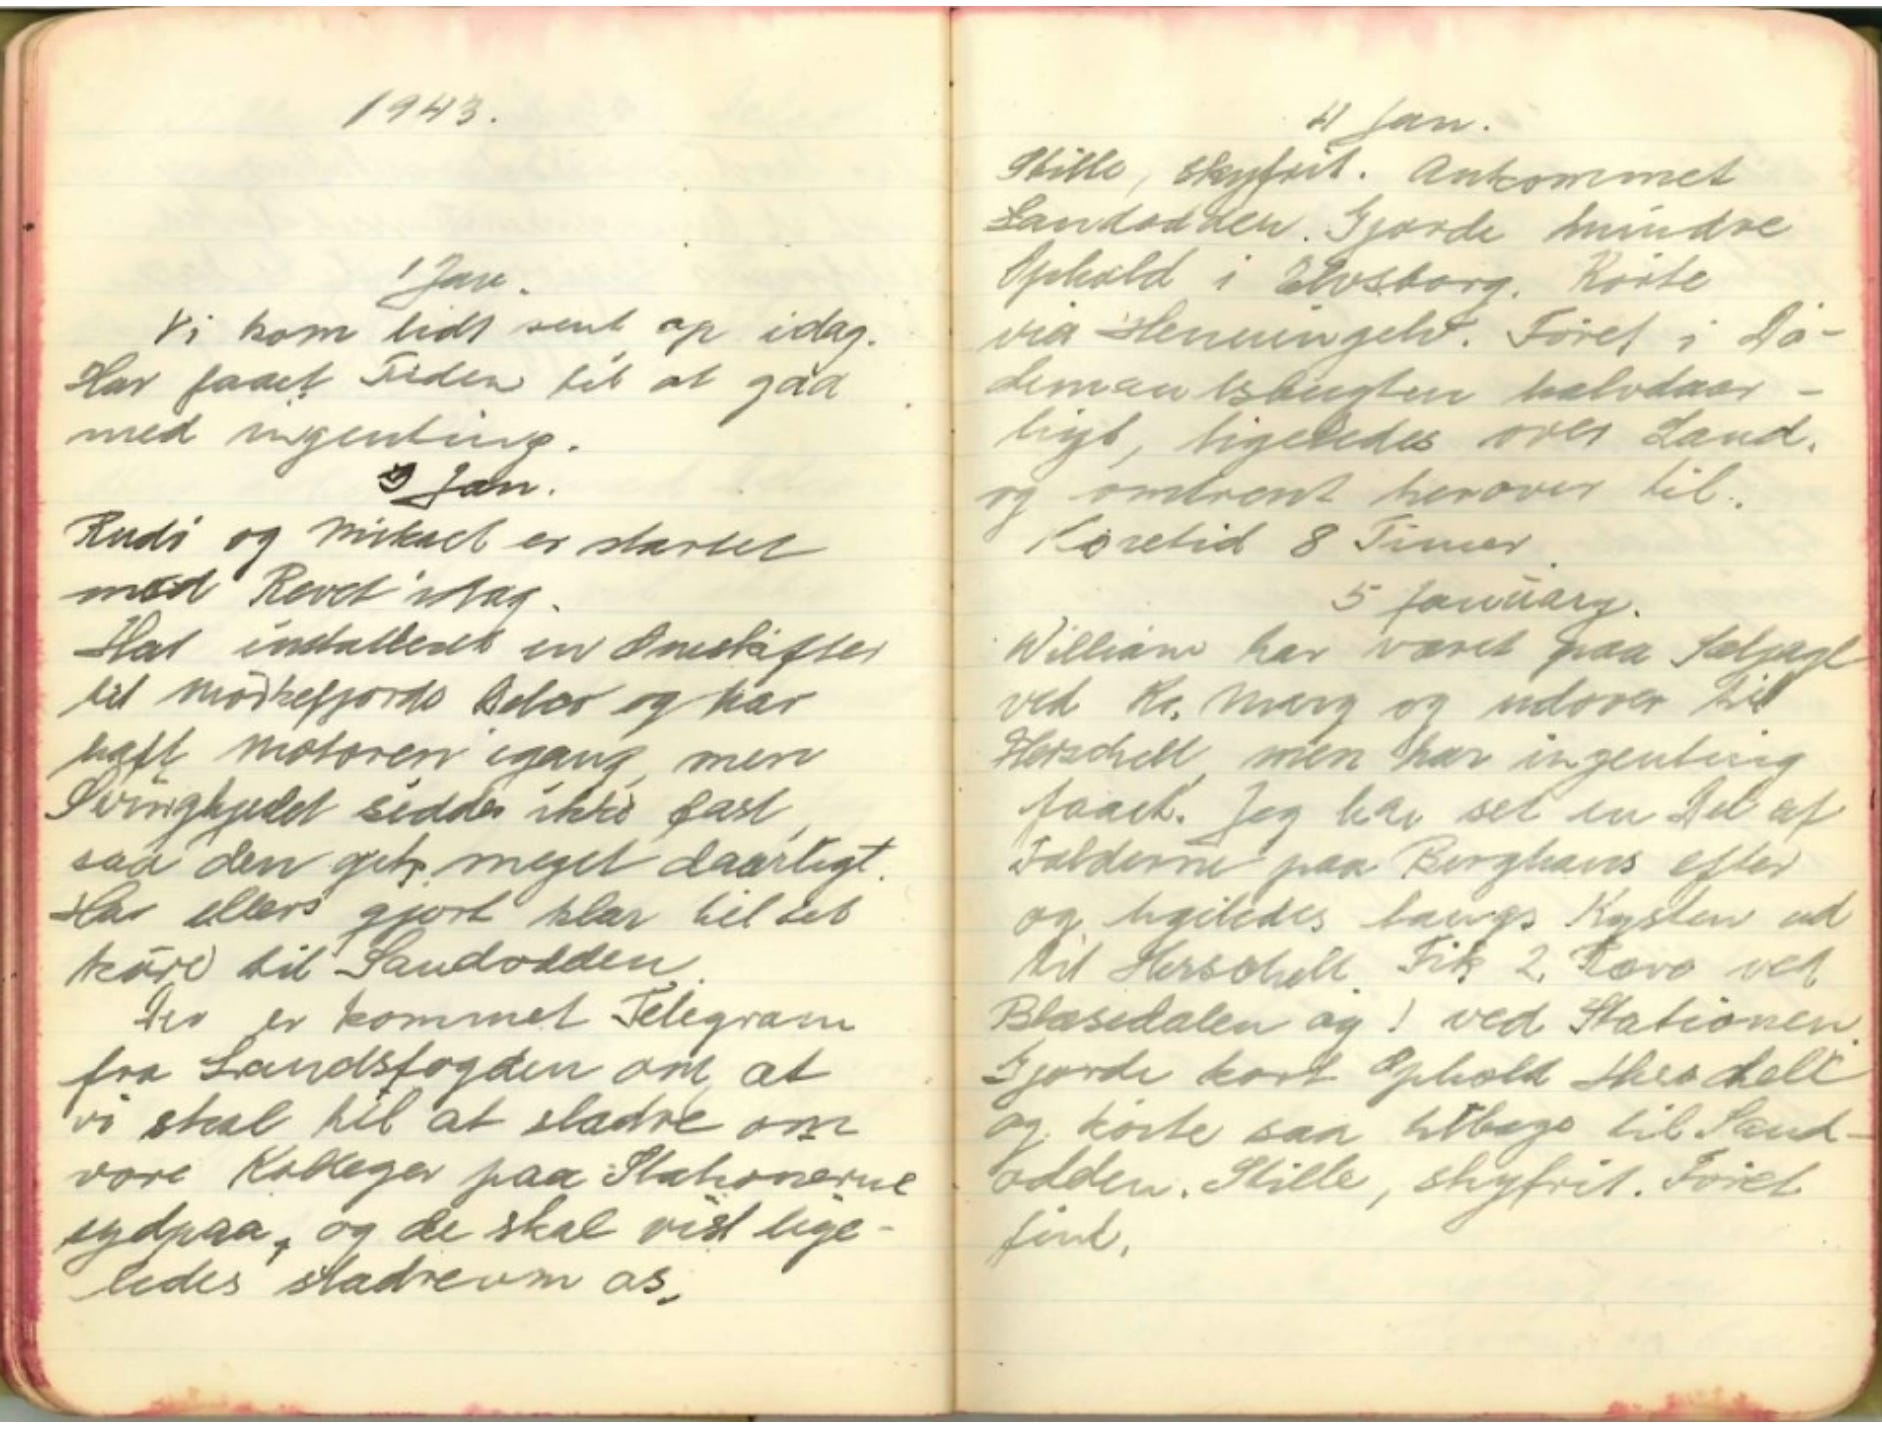 1943.
1 Jan.
Vi kom lidt sent op idag.
Har faaet Tiden til at gaa
med ingenting.
3 Jan.
Rudi og Mikael er startet
mod Revet idag.
Har installeret en Omskifter
til Mørkefjords Beler og har
haft Motoren igang, men
Svinghjulet sidder ikke fast,
saa den gik meget daarligt.
Har ellers gjort klar til at
køre til Sandodden.
Der er kommet Telegram
fra Landsfogden om, at
vi skal til at sladre om
vore Kolleger paa Stationerne
sydpaa, og de skal vist lige-
ledes sladre om os.
4 Jan.
Stille, skyfrit. Ankommet
Sandodden. Gjorde mindre
Ophold i Elvsborg. Kørte
via Henningelv. Føret i Dø-
demandsbugten halvdaar-
ligt, ligeledes over Land.
og omtrent herover til.
Køretid 8 Timer
5 January.
William har været paa Sæljagt
ved Kr. Marg og udover til
Herschell, men har ingenting
faaet. Jeg har set en Del af
Fælderne paa Berghaus efter
og ligeledes langs Kysten ud
til Herschell. Fik 2 Ræve ved
Blæsedalen og 1 ved Stationen.
Gjorde kort Ophold Herschell
og kørte saa tilbage til Sand-
odden. Stille, skyfrit. Føret
fint.